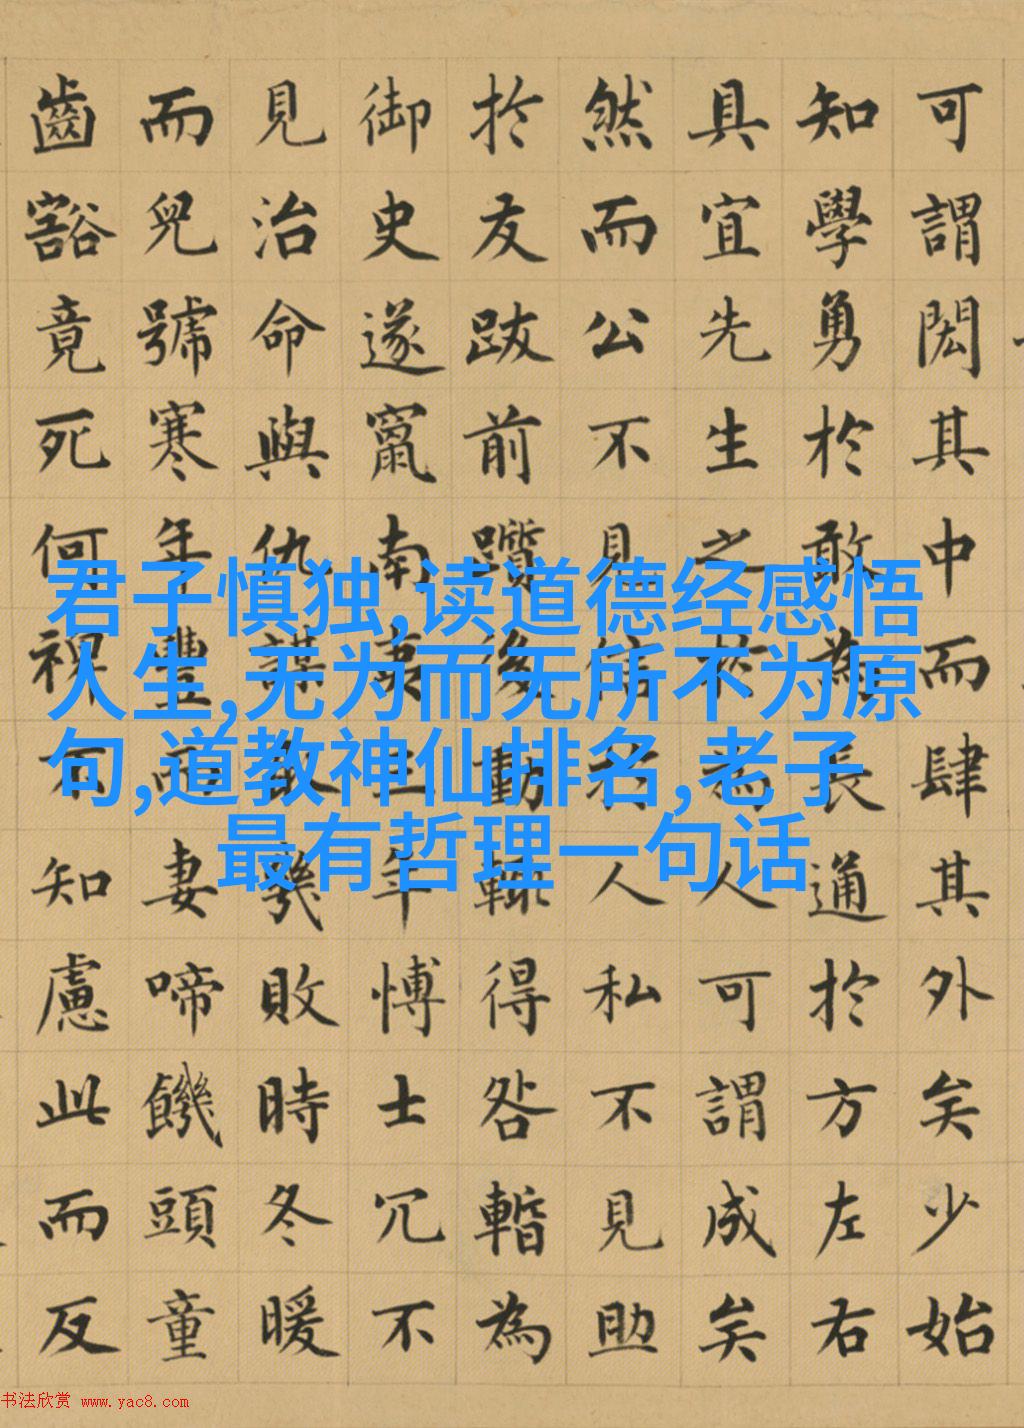 可謂閎其中而肆其外矣少始
知學勇於敢為長通於方左右
具宜先生之於為人可謂成矣
然而公不見信於人私不見助
於友跋前躓後動輒得咎暫為
御史遂竄南夷三年愽士冗不
見治命與仇謀取敗幾時冬暖
而兒號寒年豐而妻啼饑頭童
齒豁竟死何裨不知慮此而反
君子慎独,读道德经感悟
人生,无为而无所不为原
句,道教神仙排名,老子
最有哲理一句话
书法欣赏 www.yac8.com